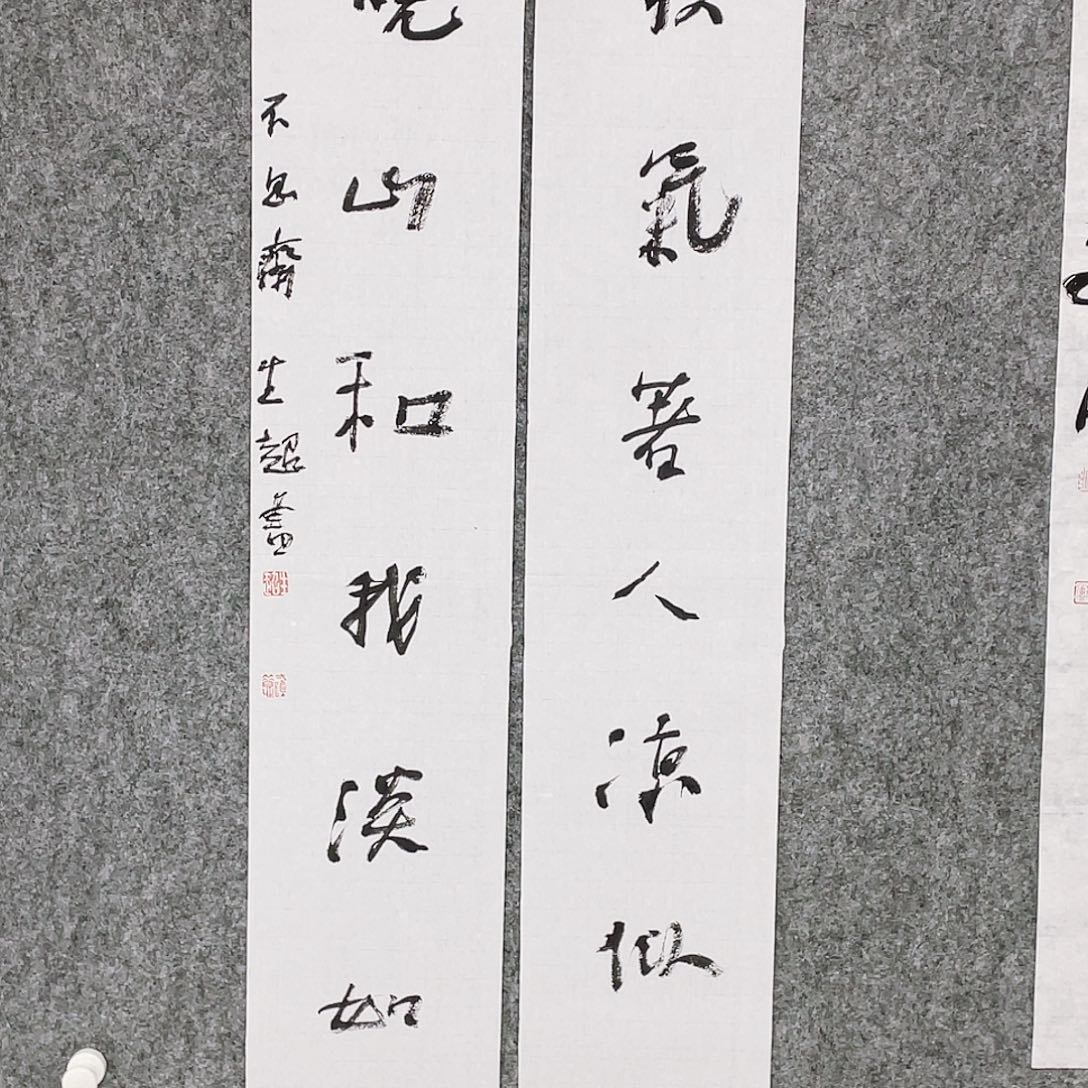 氣著人凉似
晚山和我淡如
不息齋 生超書